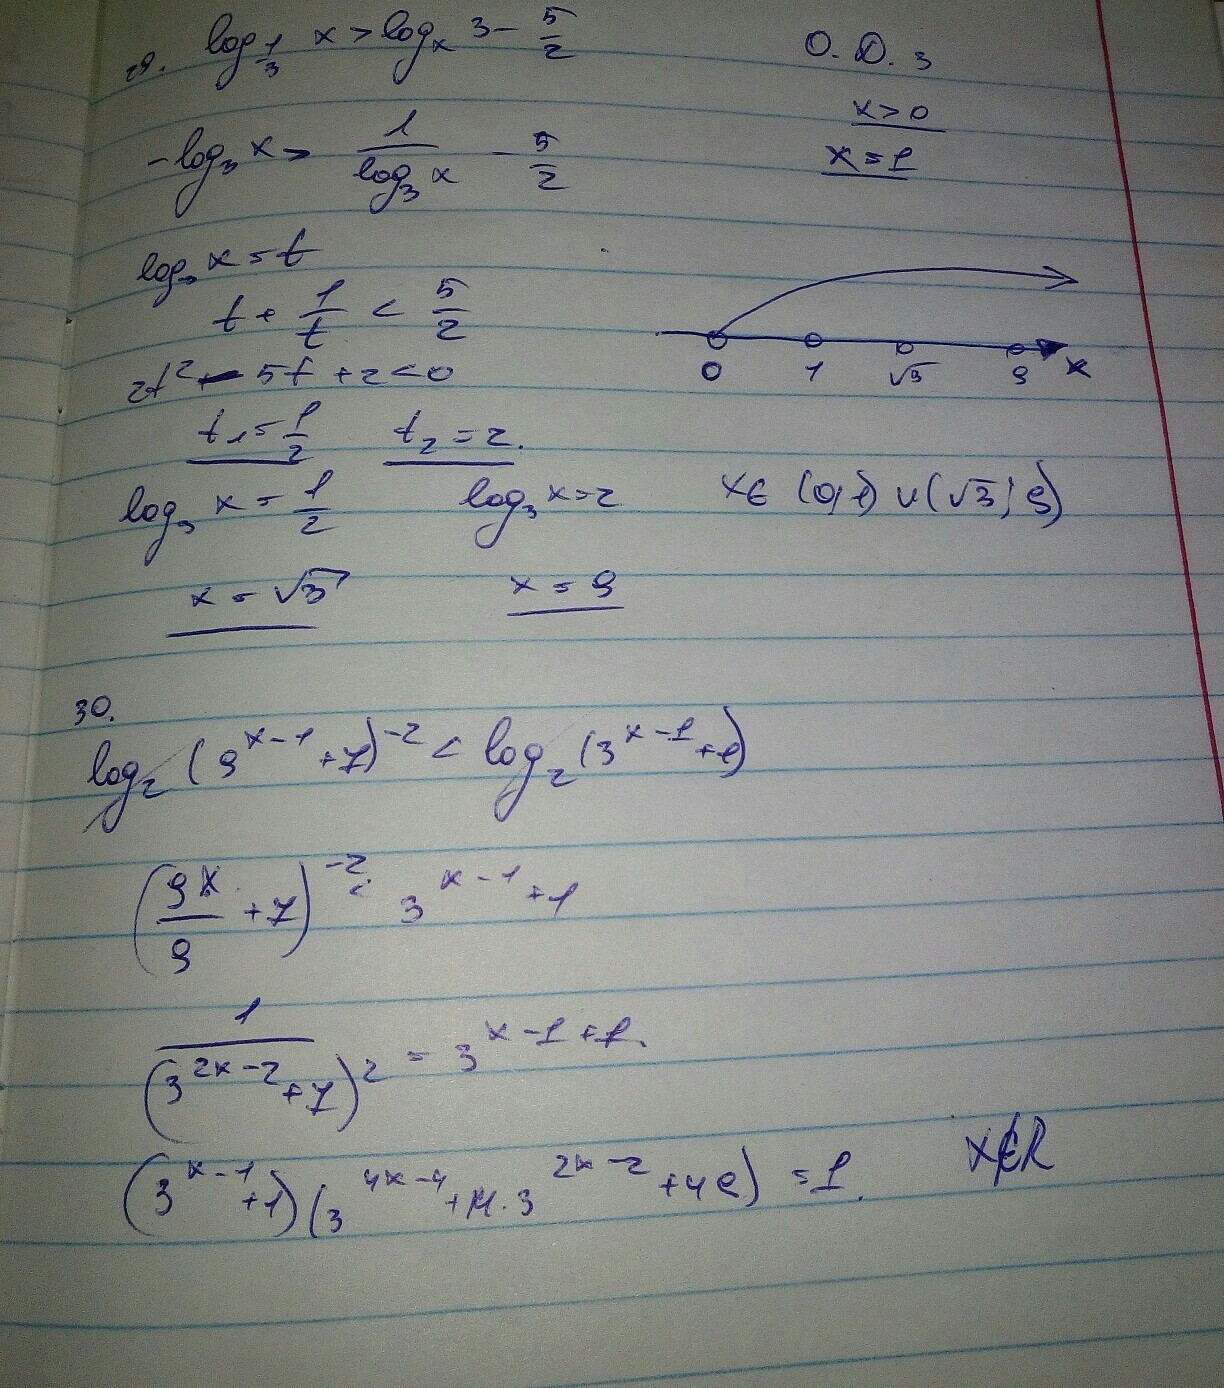 29. log_{1/3} x > log_x 3 - 5/2
О.Д.З
x > 0
x = 1
-log_3 x > 1/(log_3 x) - 5/2
log_3 x = t
t + 1/t < 5/2
2t^2 - 5t + 2 < 0
0 1 √3 9 x
t_1 = 1/2 t_2 = 2.
log_3 x = 1/2 log_3 x = 2
x ∈ (0;1) ∪ (√3; 9)
x = √3 x = 9
30.
log_2 (9^{x-1} + 7)^{-2} < log_2 (3^{x-1} + 1)
(9^x/9 + 7)^{-2} < 3^{x-1} + 1
1/(3^{2x-2} + 7)^2 = 3^{x-1+1}.
(3^{x-1} + 1)(3^{4x-4} + 14·3^{2x-2} + 49) = 1.
x ∉ R